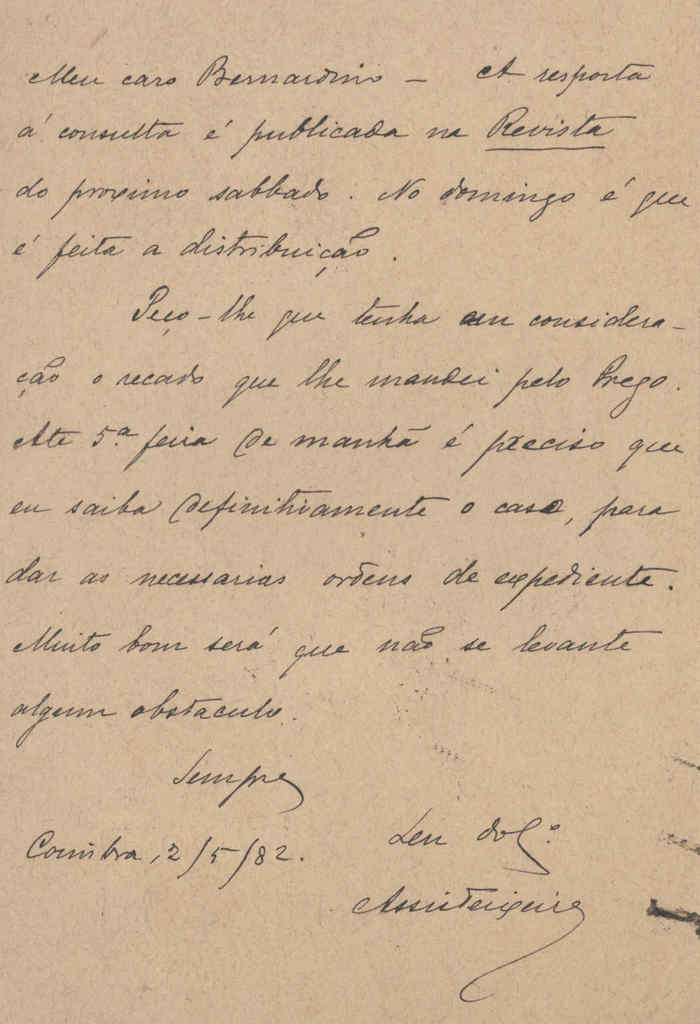 Meu caro Bernardino — A resposta
á consulta é publicada na Revista
do proximo sabbado. No domingo é que
é feita a distribuição.
Peço-lhe que tenha em considera-
ção o recado que lhe mandei pelo Prego.
Até 5.ª feira de manhã é preciso que
eu saiba definitivamente o caso, para
dar as necessarias ordens de expediente.
Muito bom será que não se levante
algum obstaculo.
Sempre
Coimbra, 2/5/82.
Seu